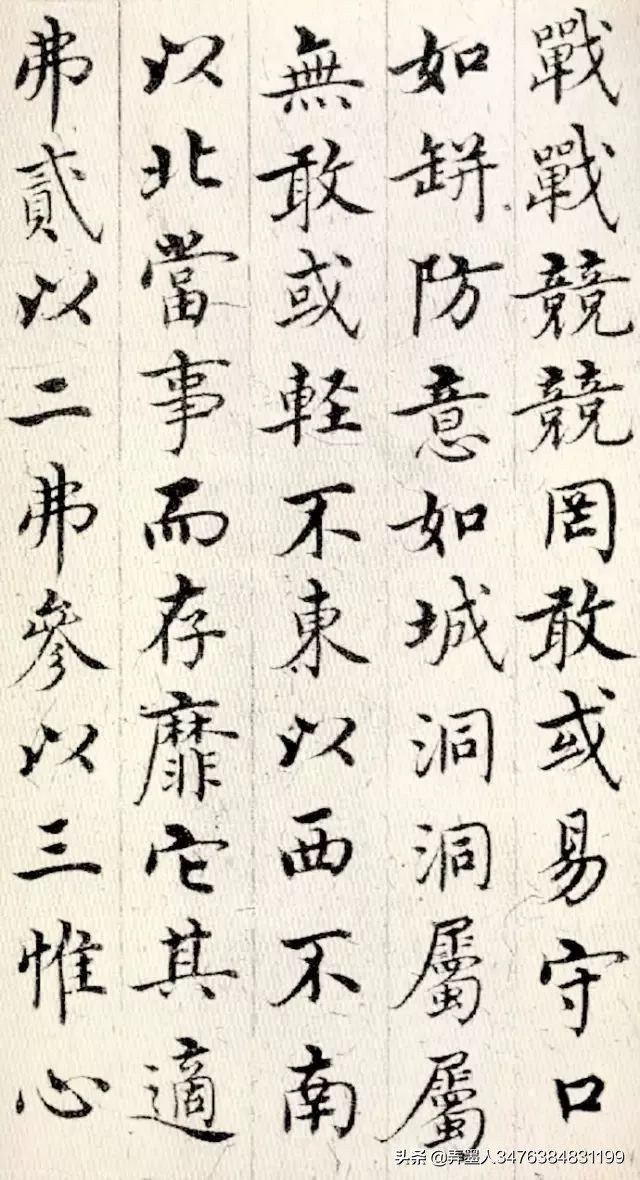 戰戰競競罔敢或易守口
如缾防意如城洞洞屬屬
無敢或軽不東以西不南
以北當事而存靡它其適
弗貳以二弗參以三惟心
头条 @弄墨人3476384831199